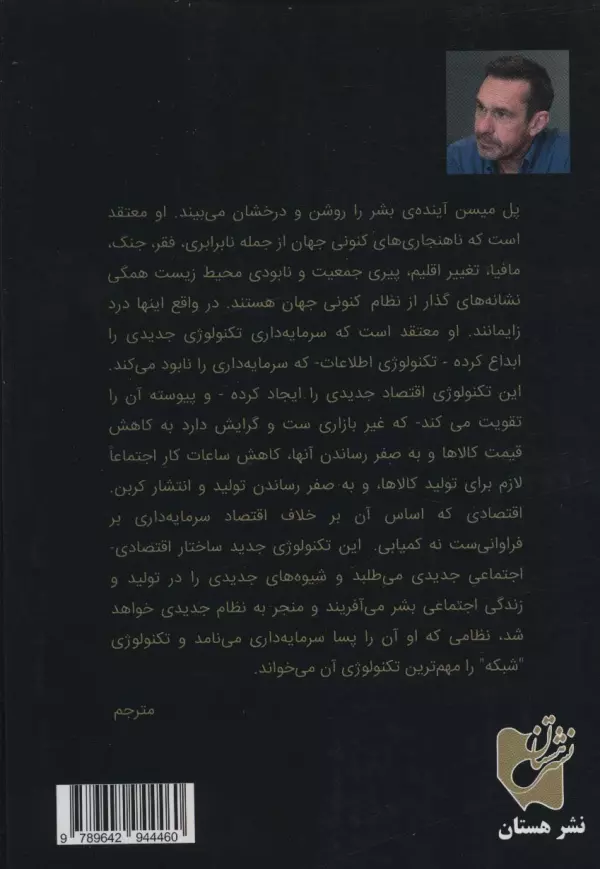 پل میسن آینده‌ی بشر را روشن و درخشان می‌بیند. او معتقد
است که ناهنجاری‌های کنونی جهان از جمله نابرابری، فقر، جنگ،
مافیا، تغییر اقلیم، پیری جمعیت و نابودی محیط زیست همگی
نشانه‌های گذار از نظام کنونی جهان هستند. در واقع اینها درد
زایمانند. او معتقد است که سرمایه‌داری تکنولوژی جدیدی را
ابداع کرده - تکنولوژی اطلاعات- که سرمایه‌داری را نابود می‌کند.
این تکنولوژی اقتصاد جدیدی را ایجاد کرده - و پیوسته آن را
تقویت می کند- که غیر بازاری ست و گرایش دارد به کاهش
قیمت کالاها و به صفر رساندن آنها، کاهش ساعات کار اجتماعاً
لازم برای تولید کالاها، و به صفر رساندن تولید و انتشار کربن.
اقتصادی که اساس آن بر خلاف اقتصاد سرمایه‌داری بر
فراوانی‌ست نه کمیابی. این تکنولوژی جدید ساختار اقتصادی-
اجتماعی جدیدی می‌طلبد و شیوه‌های جدیدی را در تولید و
زندگی اجتماعی بشر می‌آفریند و منجر به نظام جدیدی خواهد
شد، نظامی که او آن را پسا سرمایه‌داری می‌نامد و تکنولوژی
"شبکه" را مهم‌ترین تکنولوژی آن می‌خواند.
مترجم
نشر هستان
نشر هستان
9 789642 944460